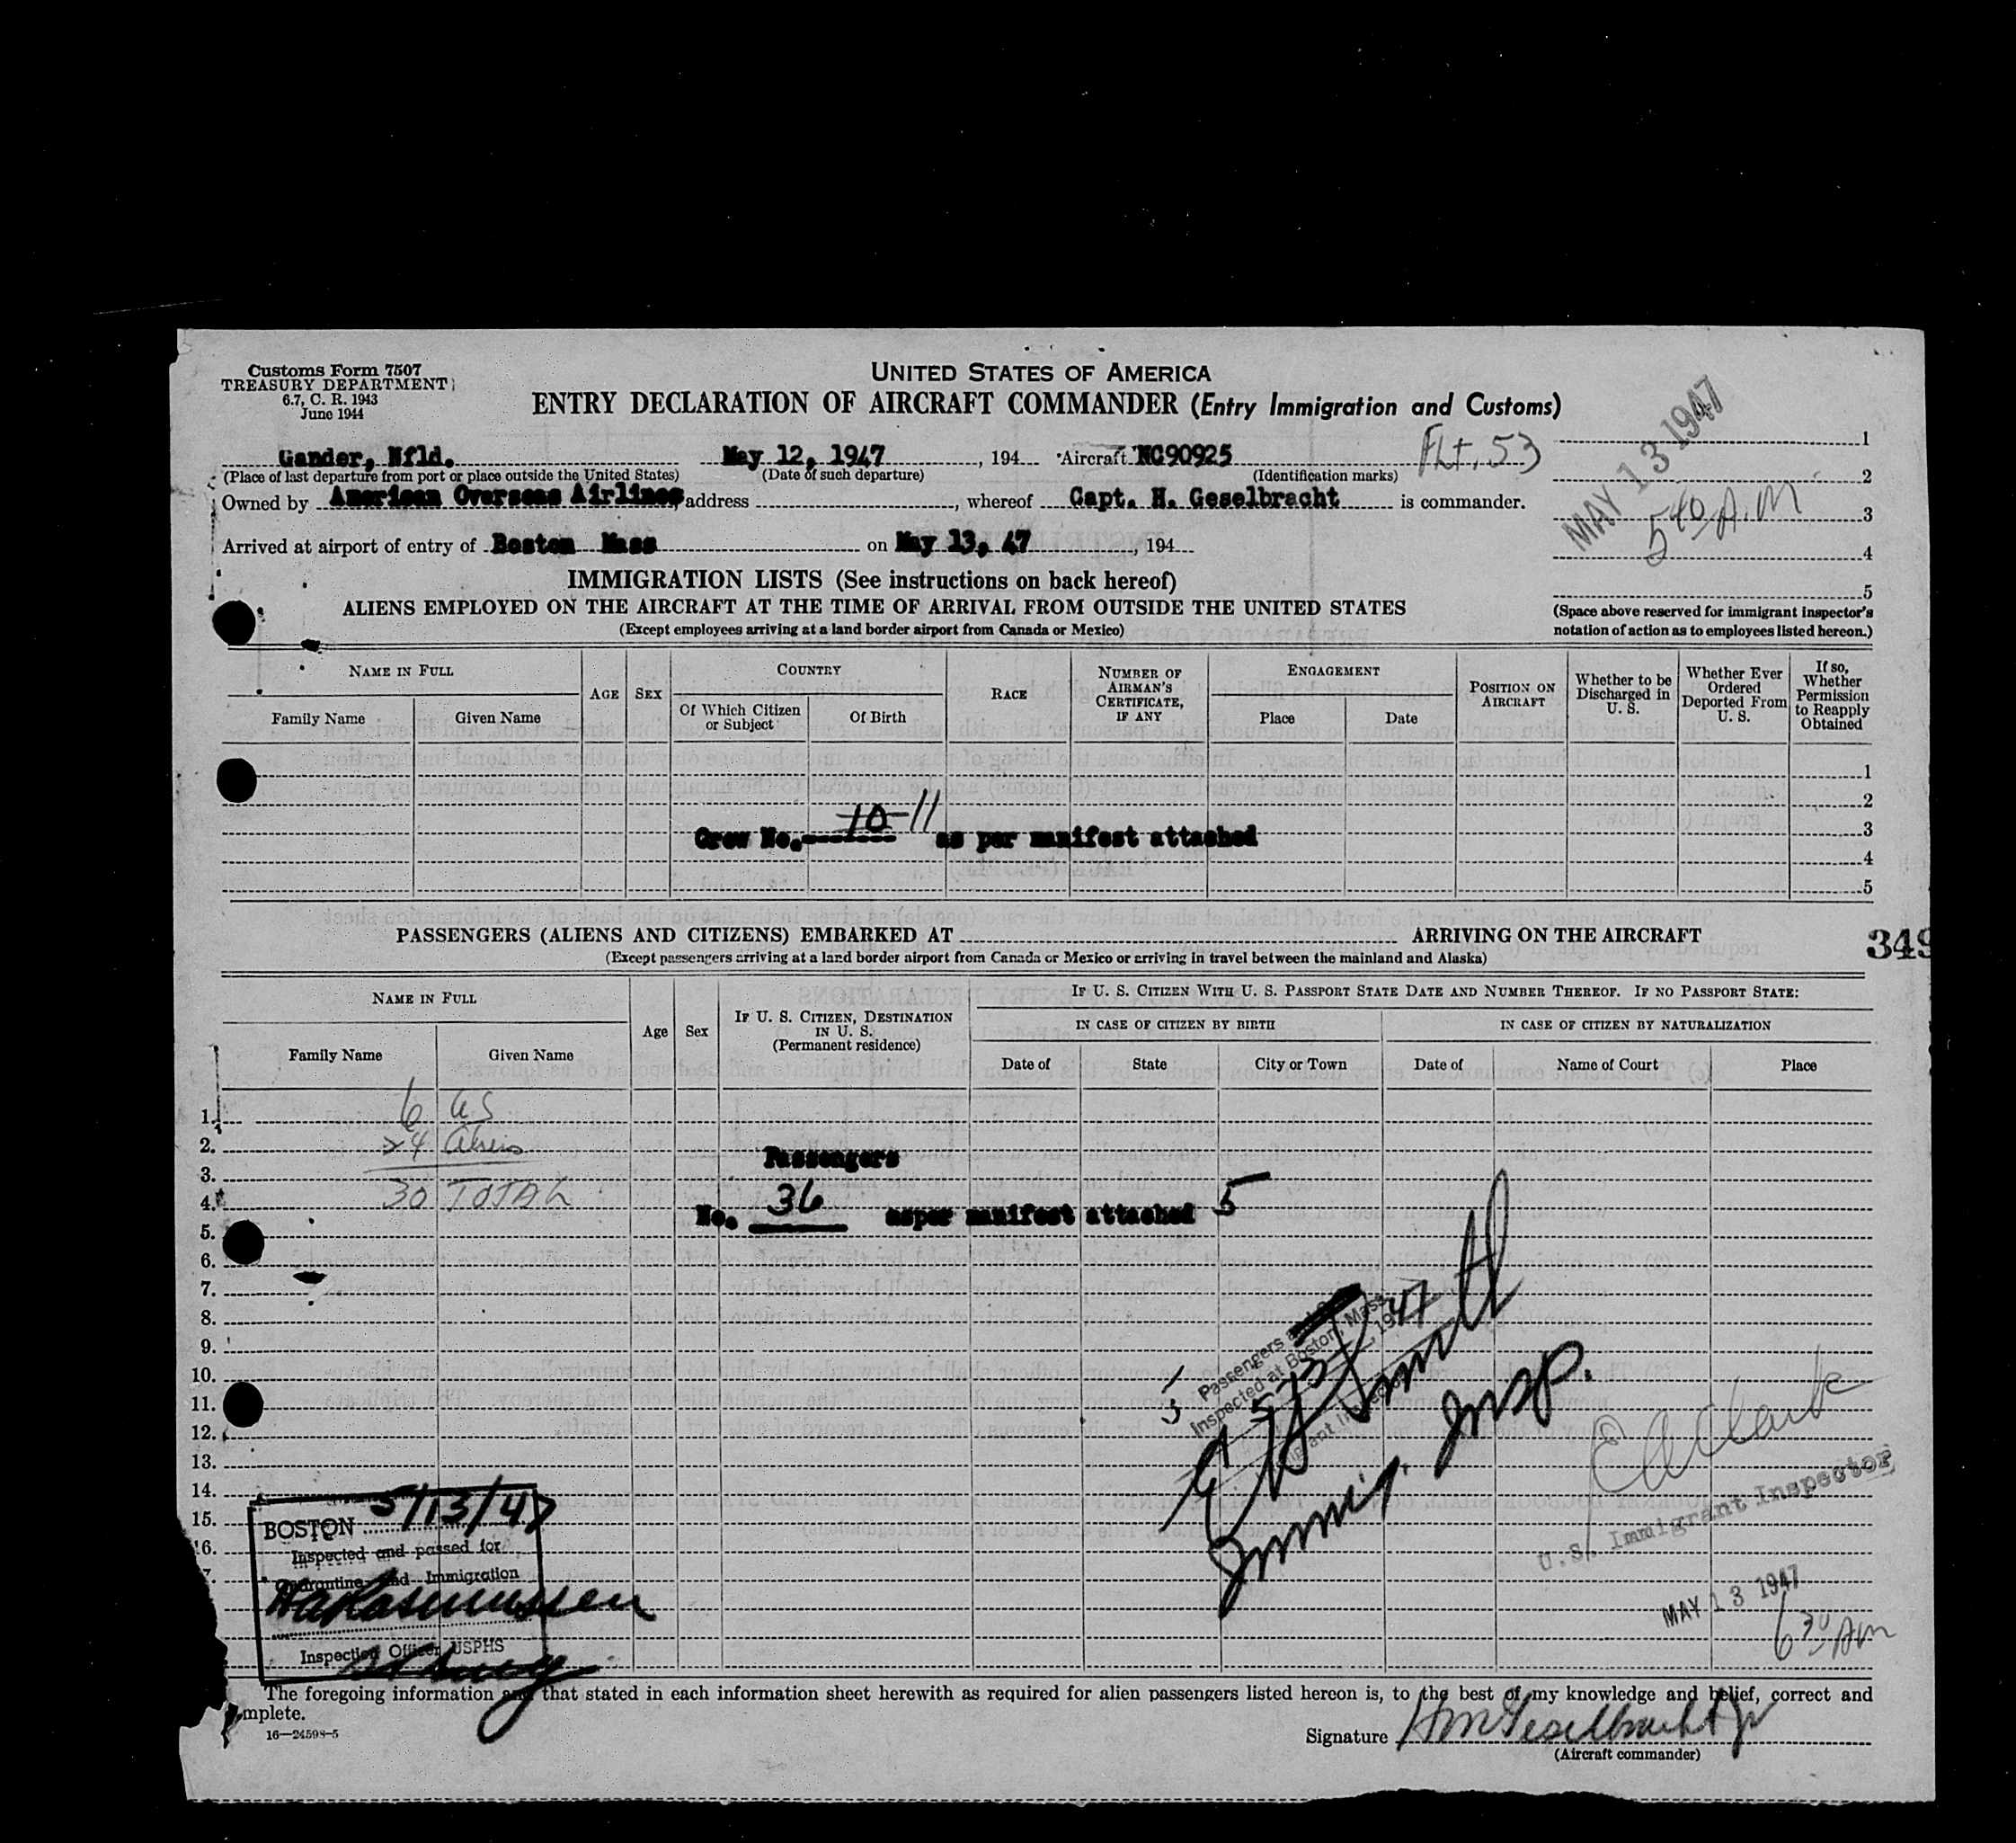 Customs Form 7507
TREASURY DEPARTMENT
6.7, C. R. 1943
June 1944
UNITED STATES OF AMERICA
ENTRY DECLARATION OF AIRCRAFT COMMANDER (Entry Immigration and Customs)
MAY 13 1947
5 40 A.M
Gander, Nfld. May 12, 1947, 194 Aircraft NC90925 Flt. 53
(Place of last departure from port or place outside the United States) (Date of such departure) (Identification marks)
Owned by American Overseas Airlines, address , whereof Capt. H. Geselbracht is commander.
Arrived at airport of entry of Boston Mass on May 13, 47, 194
1
2
3
4
5
(Space above reserved for immigrant inspector's
notation of action as to employees listed hereon.)
IMMIGRATION LISTS (See instructions on back hereof)
ALIENS EMPLOYED ON THE AIRCRAFT AT THE TIME OF ARRIVAL FROM OUTSIDE THE UNITED STATES
(Except employees arriving at a land border airport from Canada or Mexico)
NAME IN FULL
Family Name
Given Name
AGE
SEX
COUNTRY
Of Which Citizen or Subject
Of Birth
RACE
NUMBER OF AIRMAN'S CERTIFICATE, IF ANY
ENGAGEMENT
Place
Date
POSITION ON AIRCRAFT
Whether to be Discharged in U. S.
Whether Ever Ordered Deported From U. S.
If so, Whether Permission to Reapply Obtained
1
2
3
4
5
Crew No. 10 11 as per manifest attached
PASSENGERS (ALIENS AND CITIZENS) EMBARKED AT ARRIVING ON THE AIRCRAFT
349
(Except passengers arriving at a land border airport from Canada or Mexico or arriving in travel between the mainland and Alaska)
NAME IN FULL
Family Name
Given Name
Age
Sex
IF U. S. CITIZEN, DESTINATION IN U. S.
(Permanent residence)
IF U. S. CITIZEN WITH U. S. PASSPORT STATE DATE AND NUMBER THEREOF. IF NO PASSPORT STATE:
IN CASE OF CITIZEN BY BIRTH
Date of
State
City or Town
IN CASE OF CITIZEN BY NATURALIZATION
Date of
Name of Court
Place
1. 6 US
2. 24 Aliens
3.
4. 30 TOTAL
Passengers
No. 36 asper manifest attached 5
5.
6.
7.
8.
9.
10.
11.
12.
13.
14.
15.
6.
7.
5 Passengers
Inspected at Boston, Mass.
5-13, 1947
E Smith
Immig. Insp.
E A Clark
U.S. Immigrant Inspector
MAY 13 1947
6 30 AM
BOSTON 5/13/47
Inspected and passed for
Quarantine and Immigration
HA Rasmussen
Inspection Officer USPHS
The foregoing information and that stated in each information sheet herewith as required for alien passengers listed hereon is, to the best of my knowledge and belief, correct and
mplete.
16—24598-5
Signature HM Geselbracht Jr
(Aircraft commander)